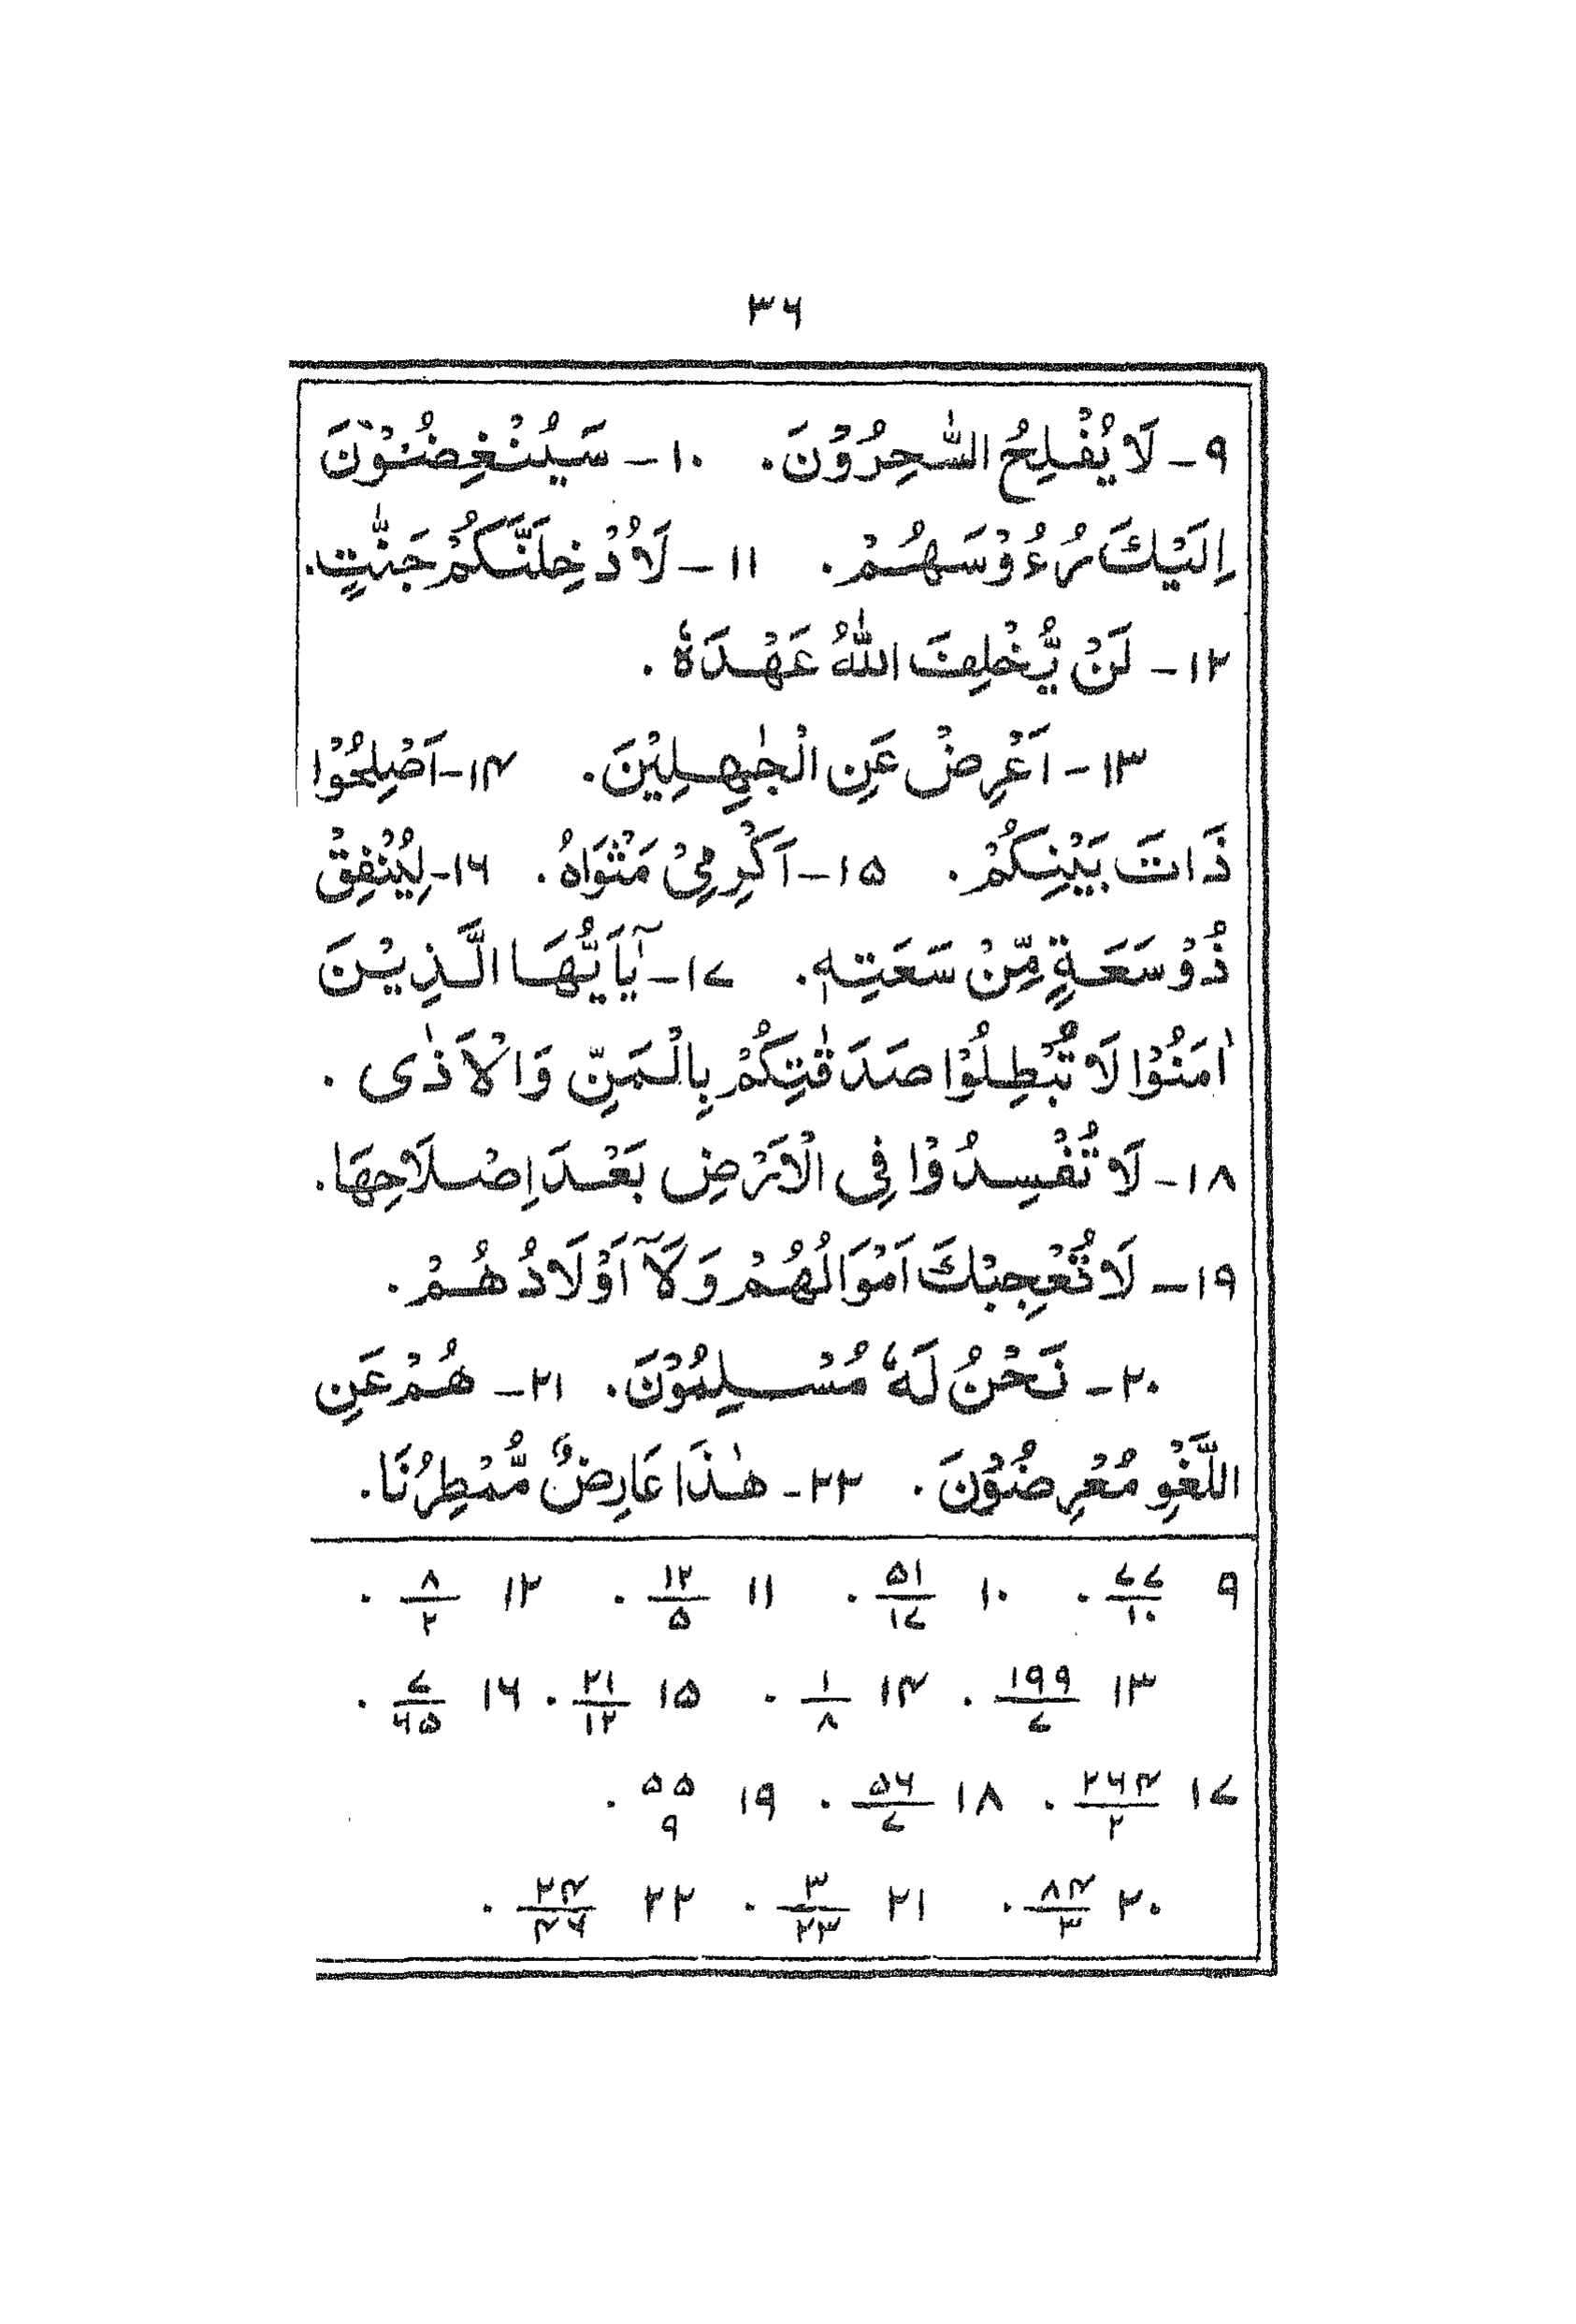 ۳۶
۹ـ لَا يُفْلِحُ السّٰحِرُوْنَ. ۱۰ـ سَيُنْغِضُوْنَ
اِلَيْكَ رُءُوْسَهُمْ. ۱۱ـ لَاُدْخِلَنَّكُمْ جَنّٰتٍ.
۱۲ـ لَنْ يُّخْلِفَ اللّٰهُ عَهْدَهٗ.
۱۳ـ اَعْرِضْ عَنِ الْجٰهِلِيْنَ. ۱۴ـ اَصْلِحُوْا
ذَاتَ بَيْنِكُمْ. ۱۵ـ اَكْرِمِىْ مَثْوَاهُ. ۱۶ـ لِيُنْفِقْ
ذُوْ سَعَةٍ مِّنْ سَعَتِهٖ. ۱۷ـ يٰۤاَيُّهَا الَّذِيْنَ
اٰمَنُوْا لَا تُبْطِلُوْا صَدَقٰتِكُمْ بِالْمَنِّ وَالْاَذٰى.
۱۸ـ لَا تُفْسِدُوْا فِى الْاَرْضِ بَعْدَ اِصْلَاحِهَا.
۱۹ـ لَا تُعْجِبْكَ اَمْوَالُهُمْ وَلَاۤ اَوْلَادُهُمْ.
۲۰ـ نَحْنُ لَهٗ مُسْلِمُوْنَ. ۲۱ـ هُمْ عَنِ
اللَّغْوِ مُعْرِضُوْنَ. ۲۲ـ هٰذَا عَارِضٌ مُّمْطِرُنَا.
۹ ۷۷/۱۰. ۱۰ ۵۱/۱۷. ۱۱ ۱۲/۵. ۱۲ ۸/۲.
۱۳ ۱۹۹/۷. ۱۴ ۱/۸. ۱۵ ۲۱/۱۲. ۱۶ ۷/۶۵.
۱۷ ۲۶۴/۲. ۱۸ ۵۶/۷. ۱۹ ۵۵/۹.
۲۰ ۸۴/۳. ۲۱ ۳/۲۳. ۲۲ ۲۴/۴۶.